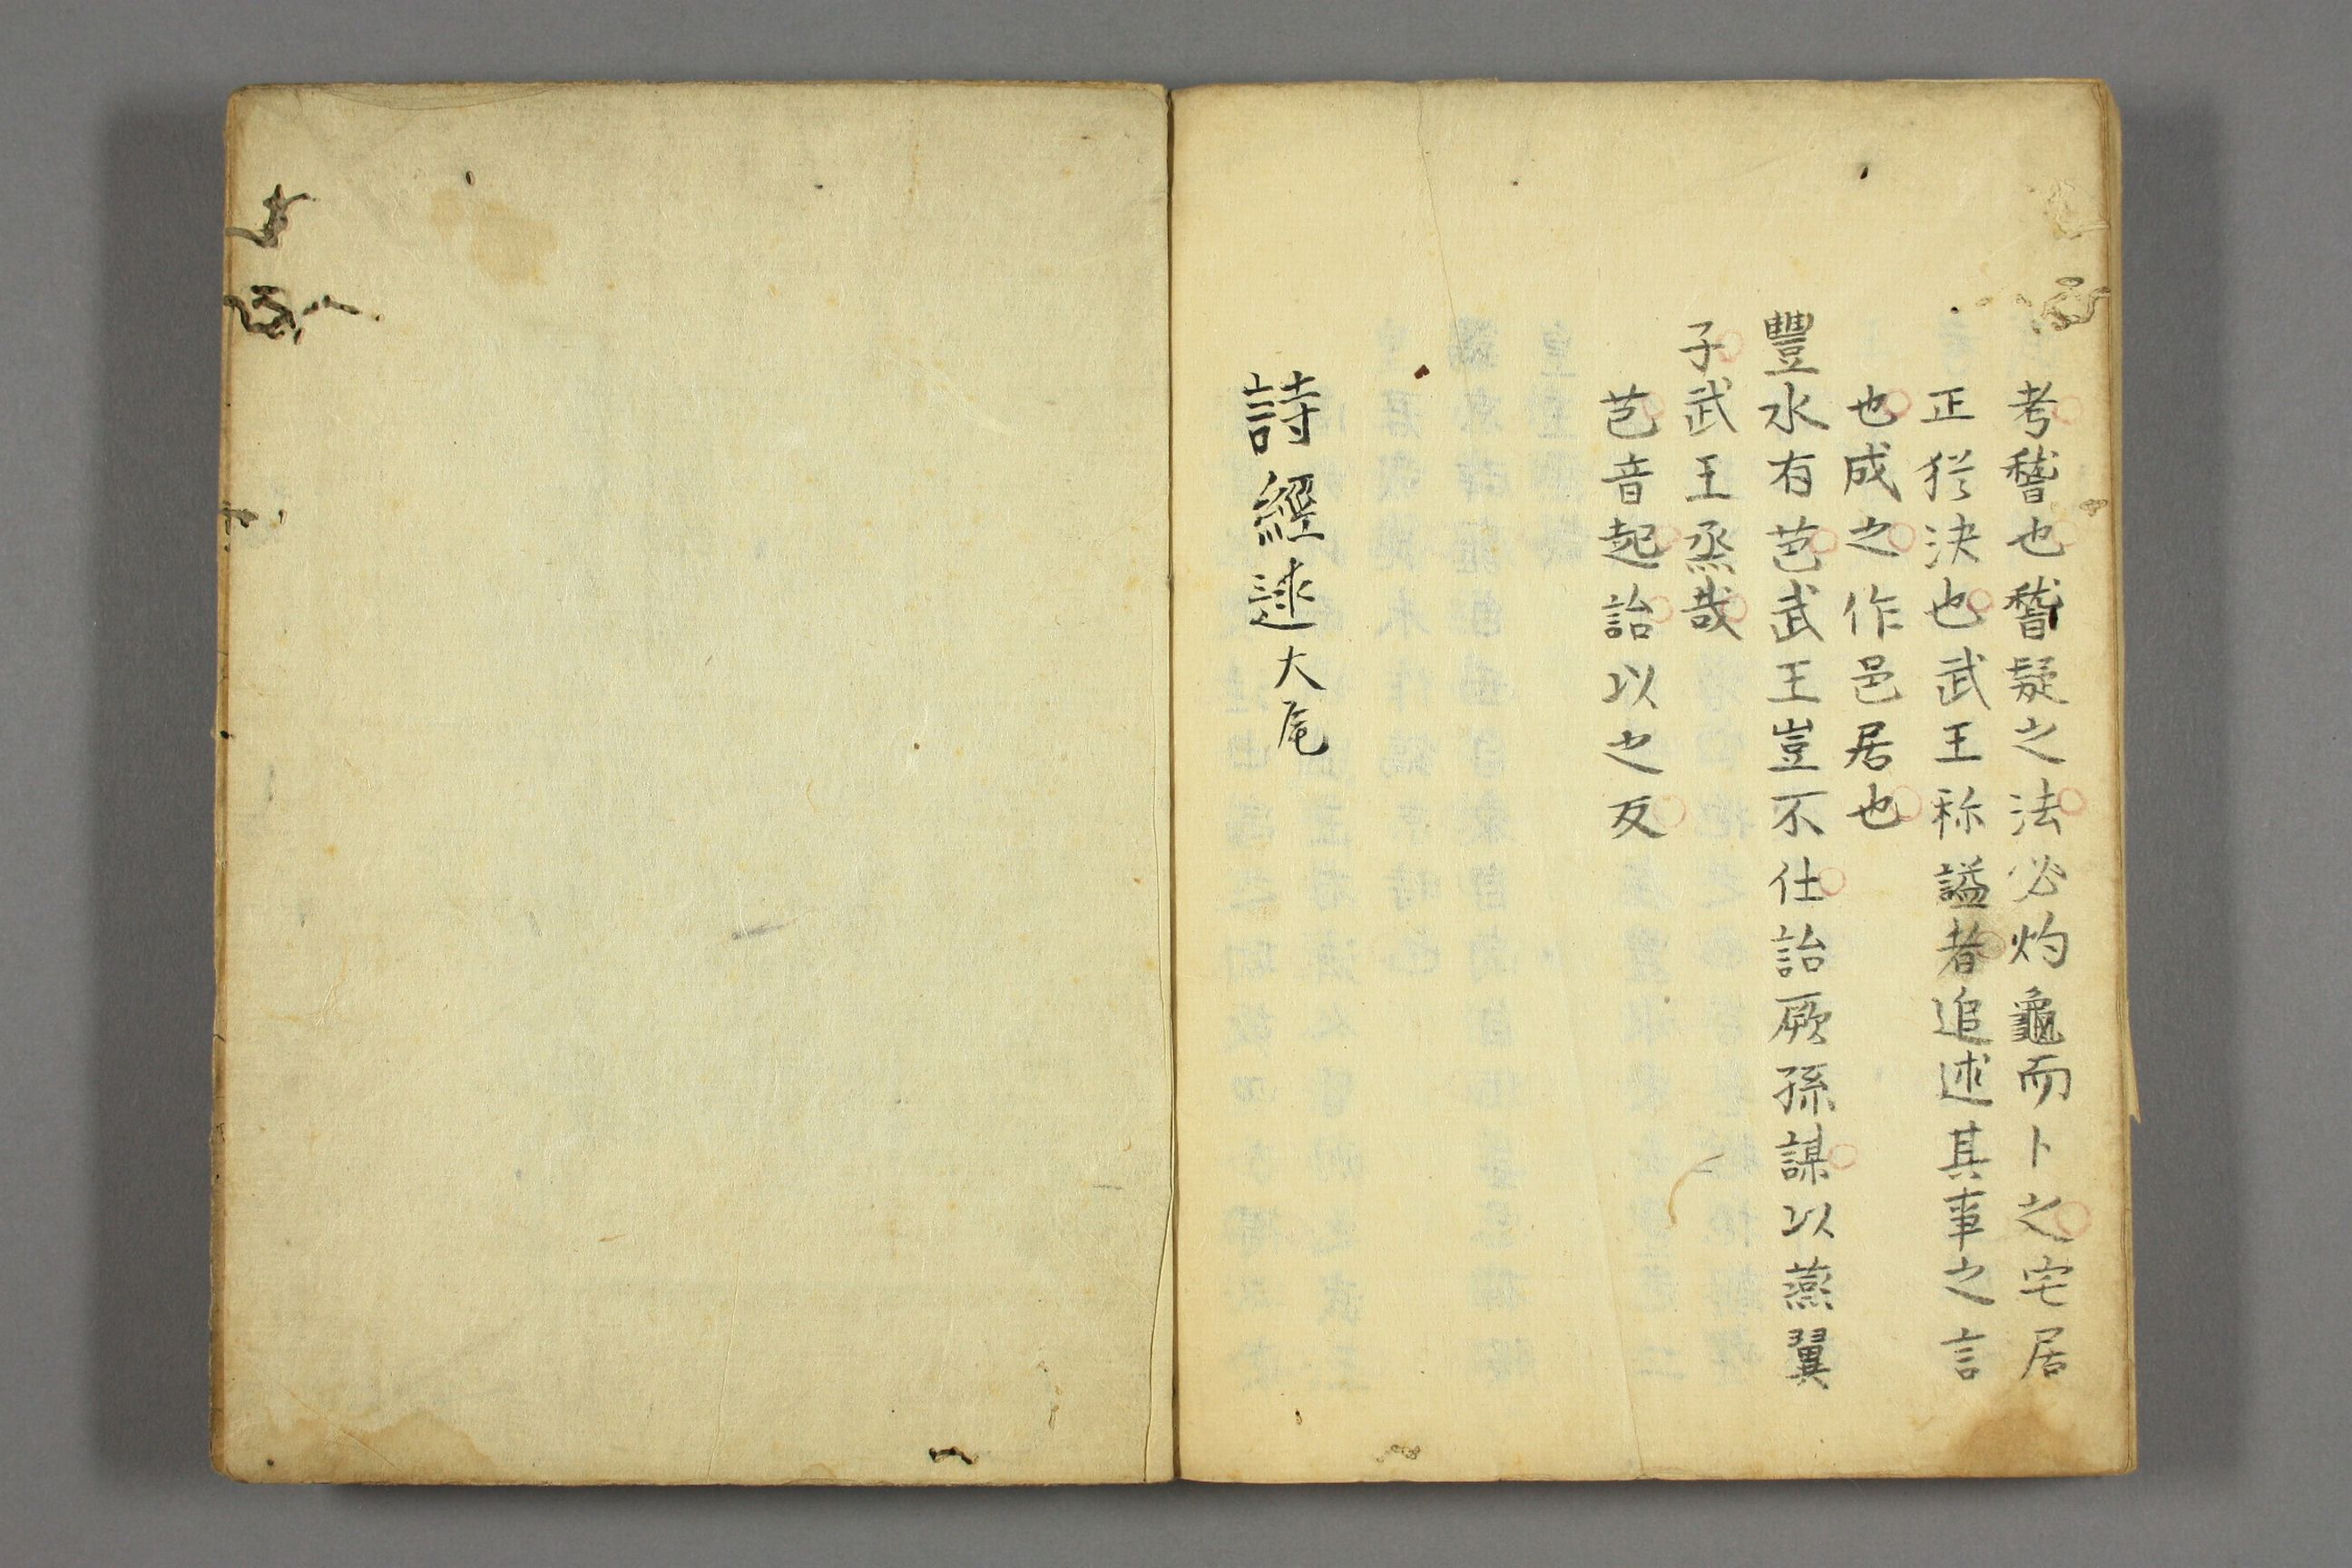 考稽也稽疑之法必灼龜而卜之宅居
正猶決也武王称謚者追述其事之言
也成之作邑居也
豐水有芑武王豈不仕詒厥孫謀以燕翼
子武王烝哉
芑音起詒以之反
詩經逑大尾